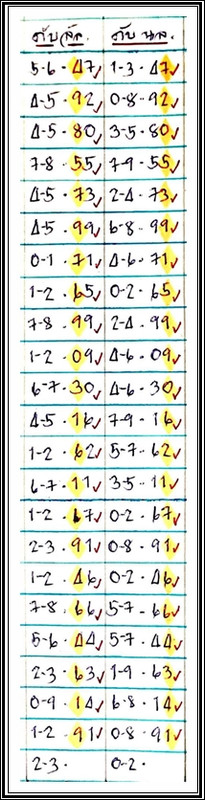 ดับหลัก. ดับ นล.
5-6 • 47✓ 1-3 • 47✓
4-5 • 92✓ 0-8 • 92✓
4-5 • 80✓ 3-5 • 80✓
7-8 • 55✓ 7-9 • 55✓
4-5 • 73✓ 2-4 • 73✓
4-5 • 99✓ 6-8 • 99✓
0-1 • 71✓ 4-6 • 71✓
1-2 • 65✓ 0-2 • 65✓
7-8 • 99✓ 2-4 • 99✓
1-2 • 09✓ 4-6 • 09✓
6-7 • 30✓ 4-6 • 30✓
4-5 • 16✓ 7-9 • 16✓
1-2 • 62✓ 5-7 • 62✓
6-7 • 11✓ 3-5 • 11✓
1-2 • 67✓ 0-2 • 67✓
2-3 • 91✓ 0-8 • 91✓
1-2 • 46✓ 0-2 • 46✓
7-8 • 66✓ 5-7 • 66✓
5-6 • 44✓ 5-7 • 44✓
2-3 • 63✓ 1-9 • 63✓
0-9 • 14✓ 6-8 • 14✓
1-2 • 91✓ 0-8 • 91✓
2-3 • 0-2 •